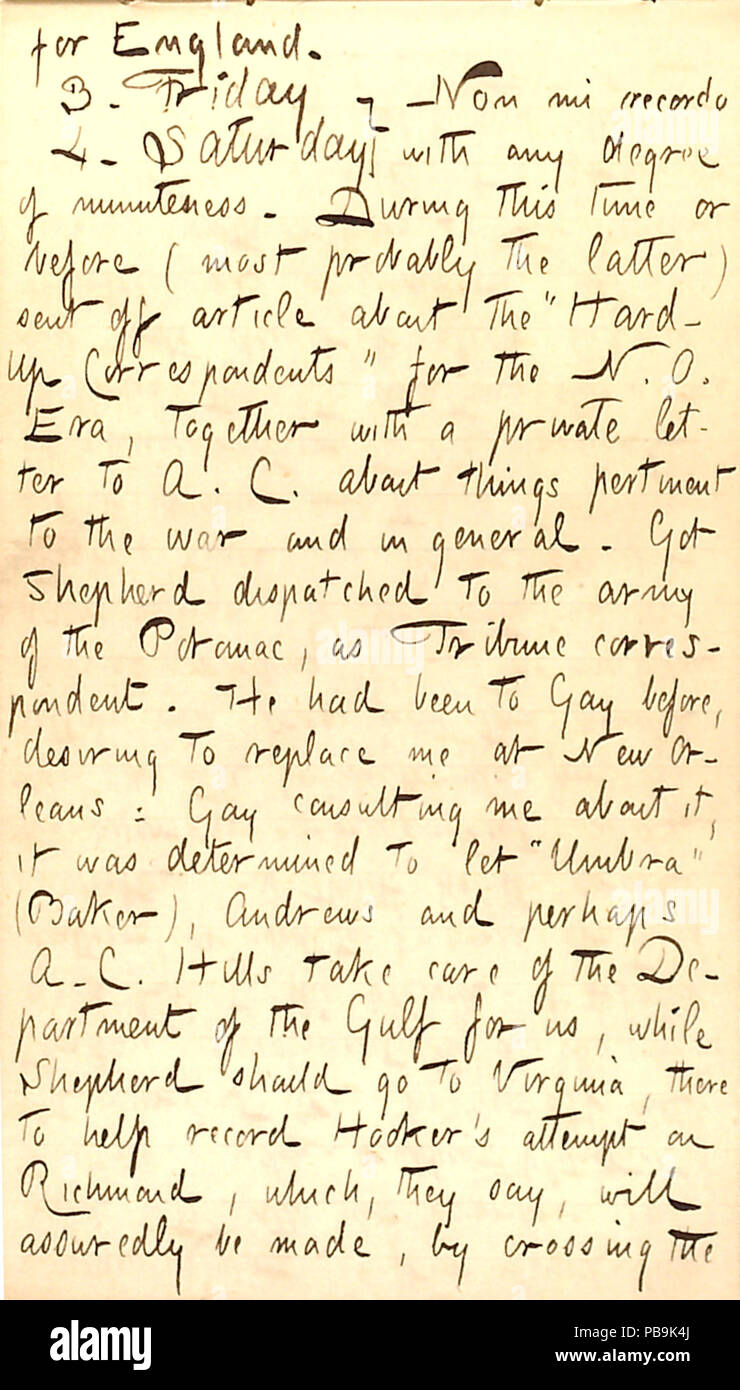 for England.
3. Friday } - Non mi recordo
4. Saturday } with any degree
of minuteness. During this time or
before (most probably the latter)
sent off article about the "Hard-
Up Correspondents" for the N. O.
Era, together with a private let-
ter to A. C. about things pertinent
to the war and in general. Got
Shepherd dispatched to the army
of the Potomac, as Tribune corres-
pondent. He had been to Gay before,
desiring to replace me at New Or-
leans: Gay consulting me about it,
it was determined to let "Umbra"
(Baker), Andrews and perhaps
A. C. Hills take care of the De-
partment of the Gulf for us, while
Shepherd should go to Virginia, there
to help record Hooker's attempt on
Richmond, which, they say, will
assuredly be made, by crossing the
alamy
Image ID: PB9K4J
www.alamy.com